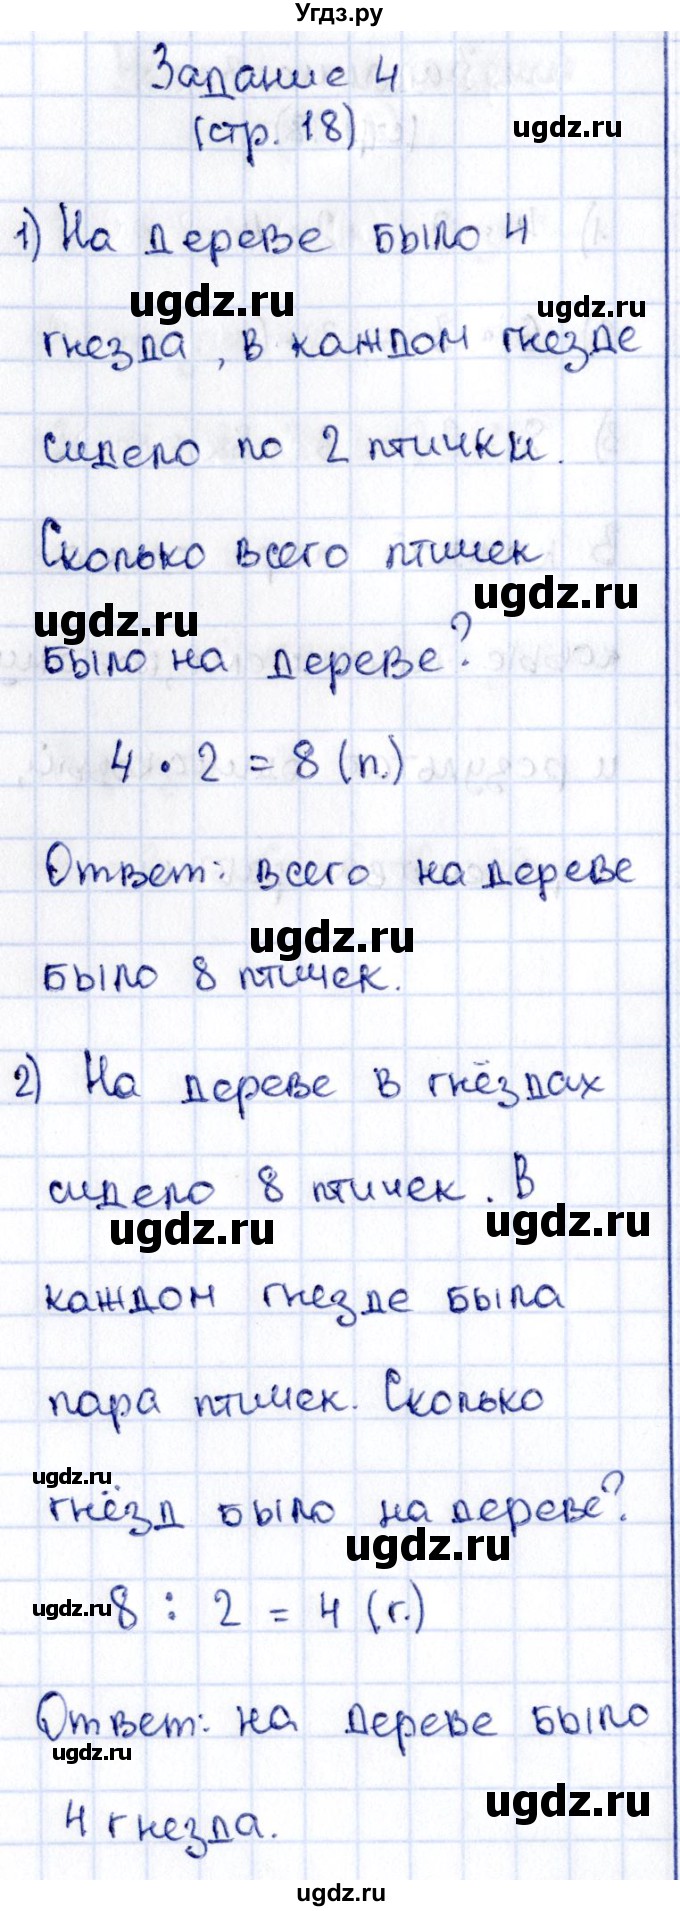 Угдз.ру
Задание 4
(стр. 18)
ugdz.ru
1) На дереве было 4
ugdz.ru
ugdz.ru
гнезда, в каждом гнезде
сидело по 2 птички.
Сколько всего птичек
ugdz.ru
ugdz.ru
было на дереве?
4 · 2 = 8 (п.)
Ответ: всего на дереве
ugdz.ru
было 8 птичек.
2) На дереве в гнёздах
сидело 8 птичек. В
ugdz.ru
ugdz.ru
каждом гнезде была
пара птичек. Сколько
ugdz.ru
гнёзд было на дереве?
ugdz.ru
ugdz.ru
8 : 2 = 4 (г.)
Ответ: на дереве было
ugdz.ru
ugdz.ru
4 гнезда.
ugdz.ru